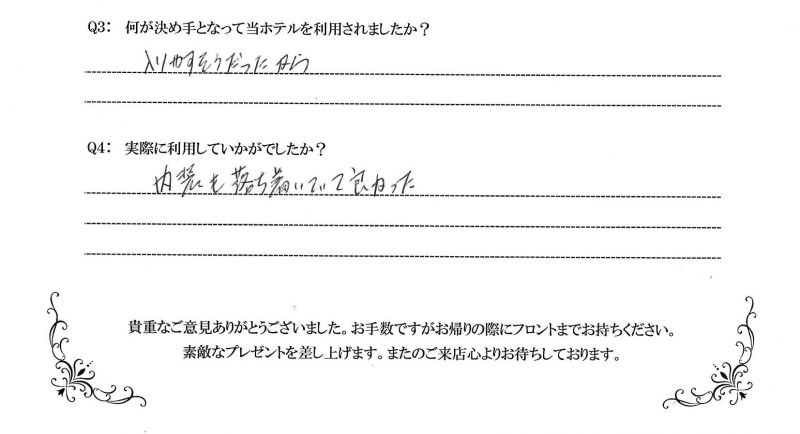 Q3: 何が決め手となって当ホテルを利用されましたか？
入りやすそうだったから
Q4: 実際に利用していかがでしたか？
内装も落ち着いていて良かった
貴重なご意見ありがとうございました。お手数ですがお帰りの際にフロントまでお持ちください。
素敵なプレゼントを差し上げます。またのご来店心よりお待ちしております。